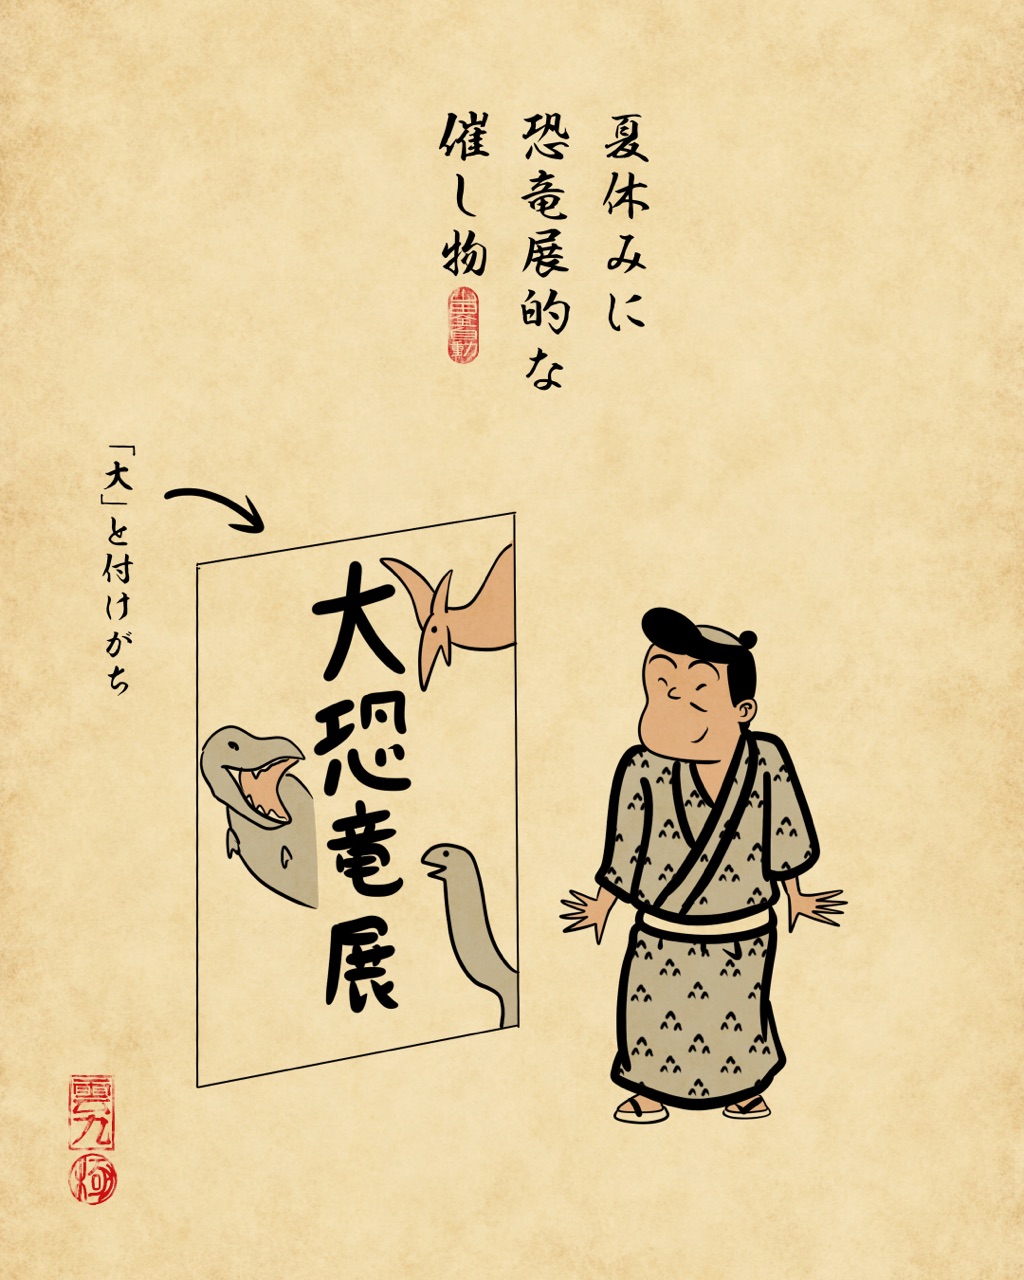 夏休みに
恐竜展的な
催し物
「大」と付けがち
大恐竜展